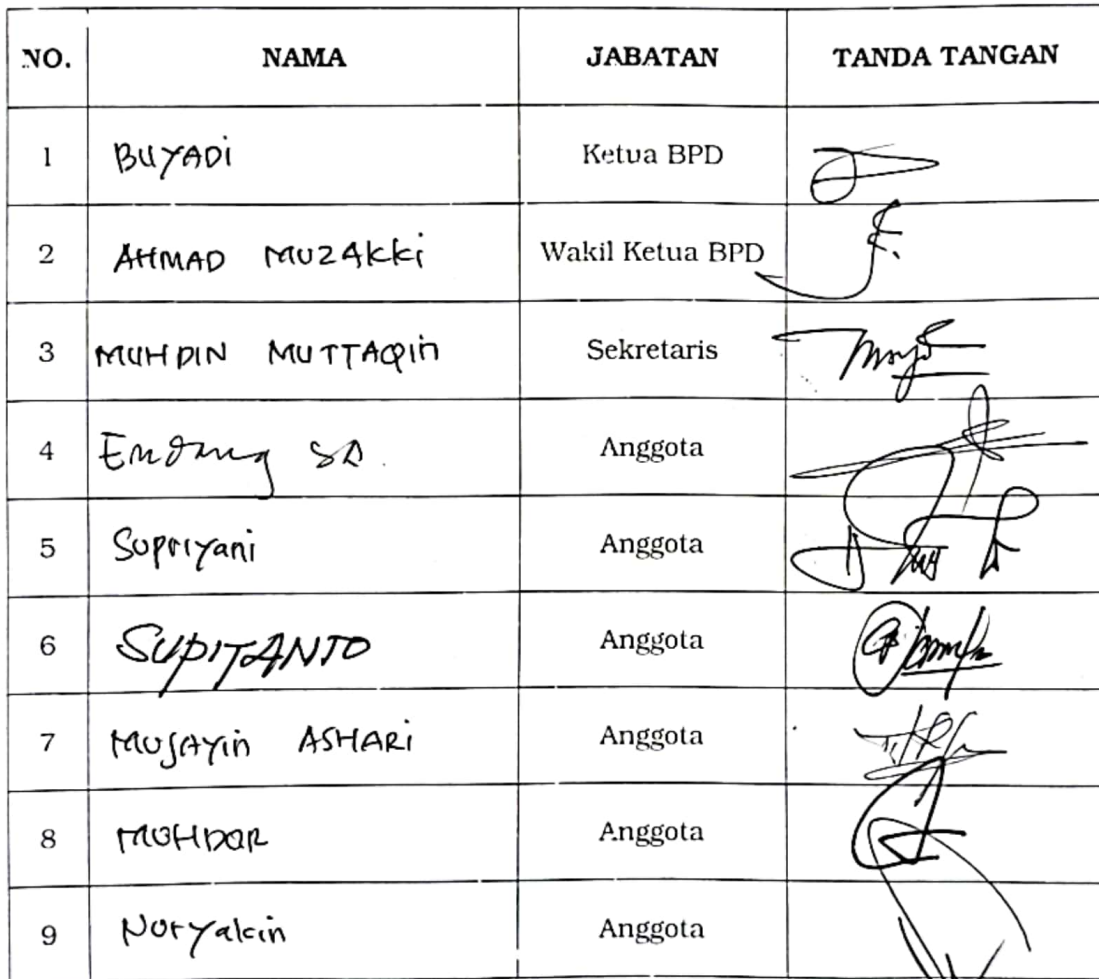 NO. NAMA JABATAN TANDA TANGAN
1 BUYADI Ketua BPD
2 AHMAD MUZAKKI Wakil Ketua BPD
3 MUHDIN MUTTAQIN Sekretaris
4 Endang SD. Anggota
5 Supriyani Anggota
6 SUPITANTO Anggota
7 MUJAYIN ASHARI Anggota
8 MUHDOR Anggota
9 Nuryakin Anggota